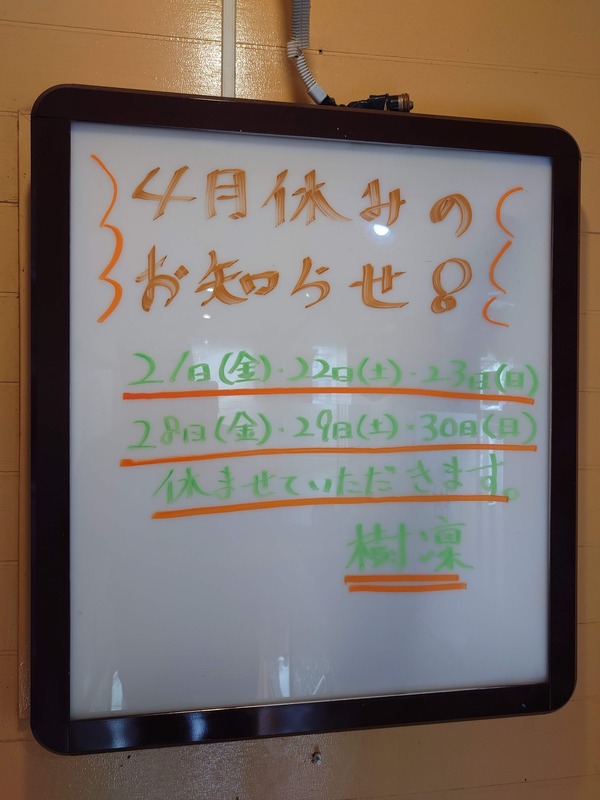 4月休みの
お知らせ8
21日(金)・22日(土)・23日(日)
28日(金)・29日(土)・30日(日)
休ませていただきます。
樹凜